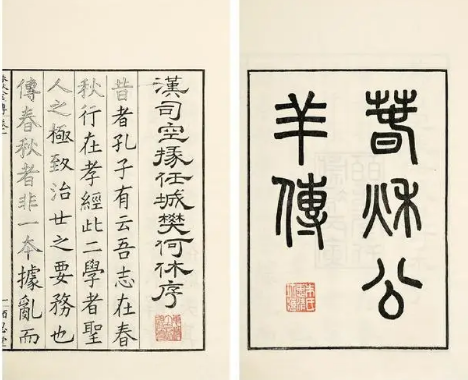 春秋公
羊傳
漢司空掾任城樊何休序
昔者孔子有云吾志在春
秋行在孝經此二學者聖
人之極致治世之要務也
傳春秋者非一本據亂而